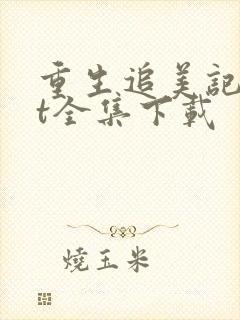 重生追美記
t全集下載
燒玉米